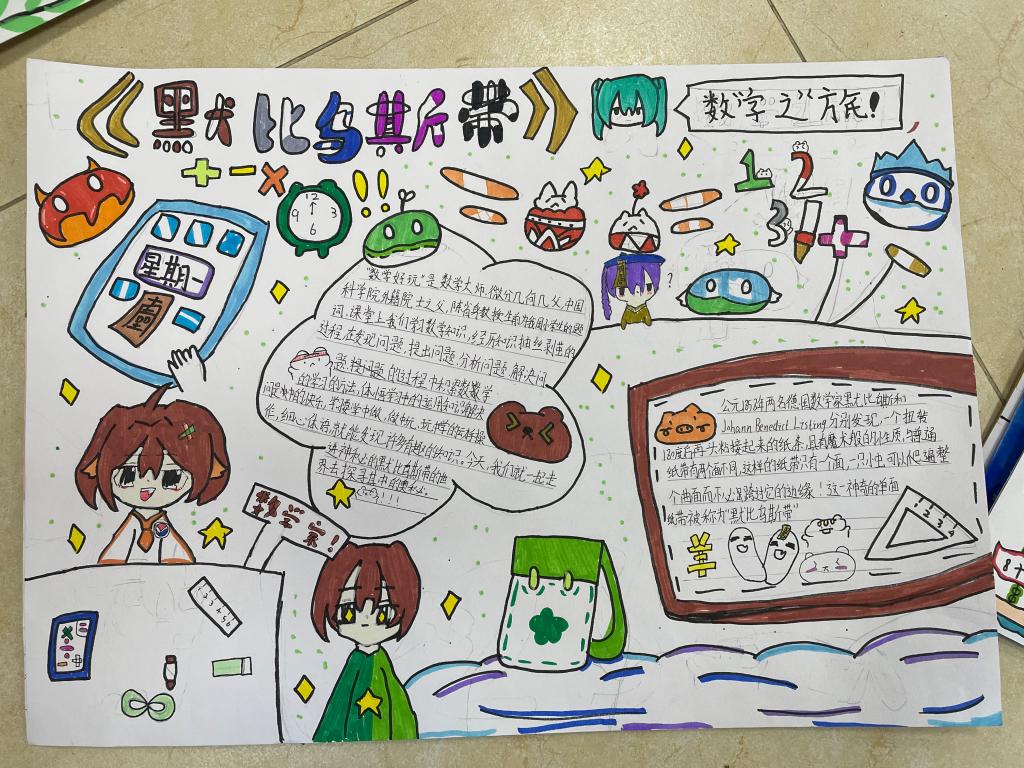 《默比乌斯带》
数学之方氏!
12
9
6
!!
1 2
3 4
星期一
"数学好玩"是数学大师,微分几何几父,中国
科学院外籍院士之父,陈省身教授生前为祖国小学生的题
词,课堂上我们学习数学知识,经历知识抽丝剥茧的
过程在发现问题,提出问题 分析问题 解决问
题,提问题的过程中积累数学
的学习的方法,体悟学过的运用知识解决
问题来的快乐,学操学中做,做中玩,玩博的
作,细心体悟就能发现许多有趣的知识,今天,我们就一起走
进神秘的默比乌斯带的世
界去探寻其中的奥妙
!!!
?
公元1858年两名德国数学家默比乌斯和
Johann Benedict Listing分别发现,一个扭转
180度后再两头粘接起来的纸条,具有魔术般的性质,与普通
纸带有两个面不同,这样的纸带只有一个面,一只小虫可以爬遍整
个曲面而不必足跨过它的边缘!这一神奇的单面
纸带被称为"默比乌斯带"
1 2 3 4 5
数学家!
1 2 3 4 5 6
8+